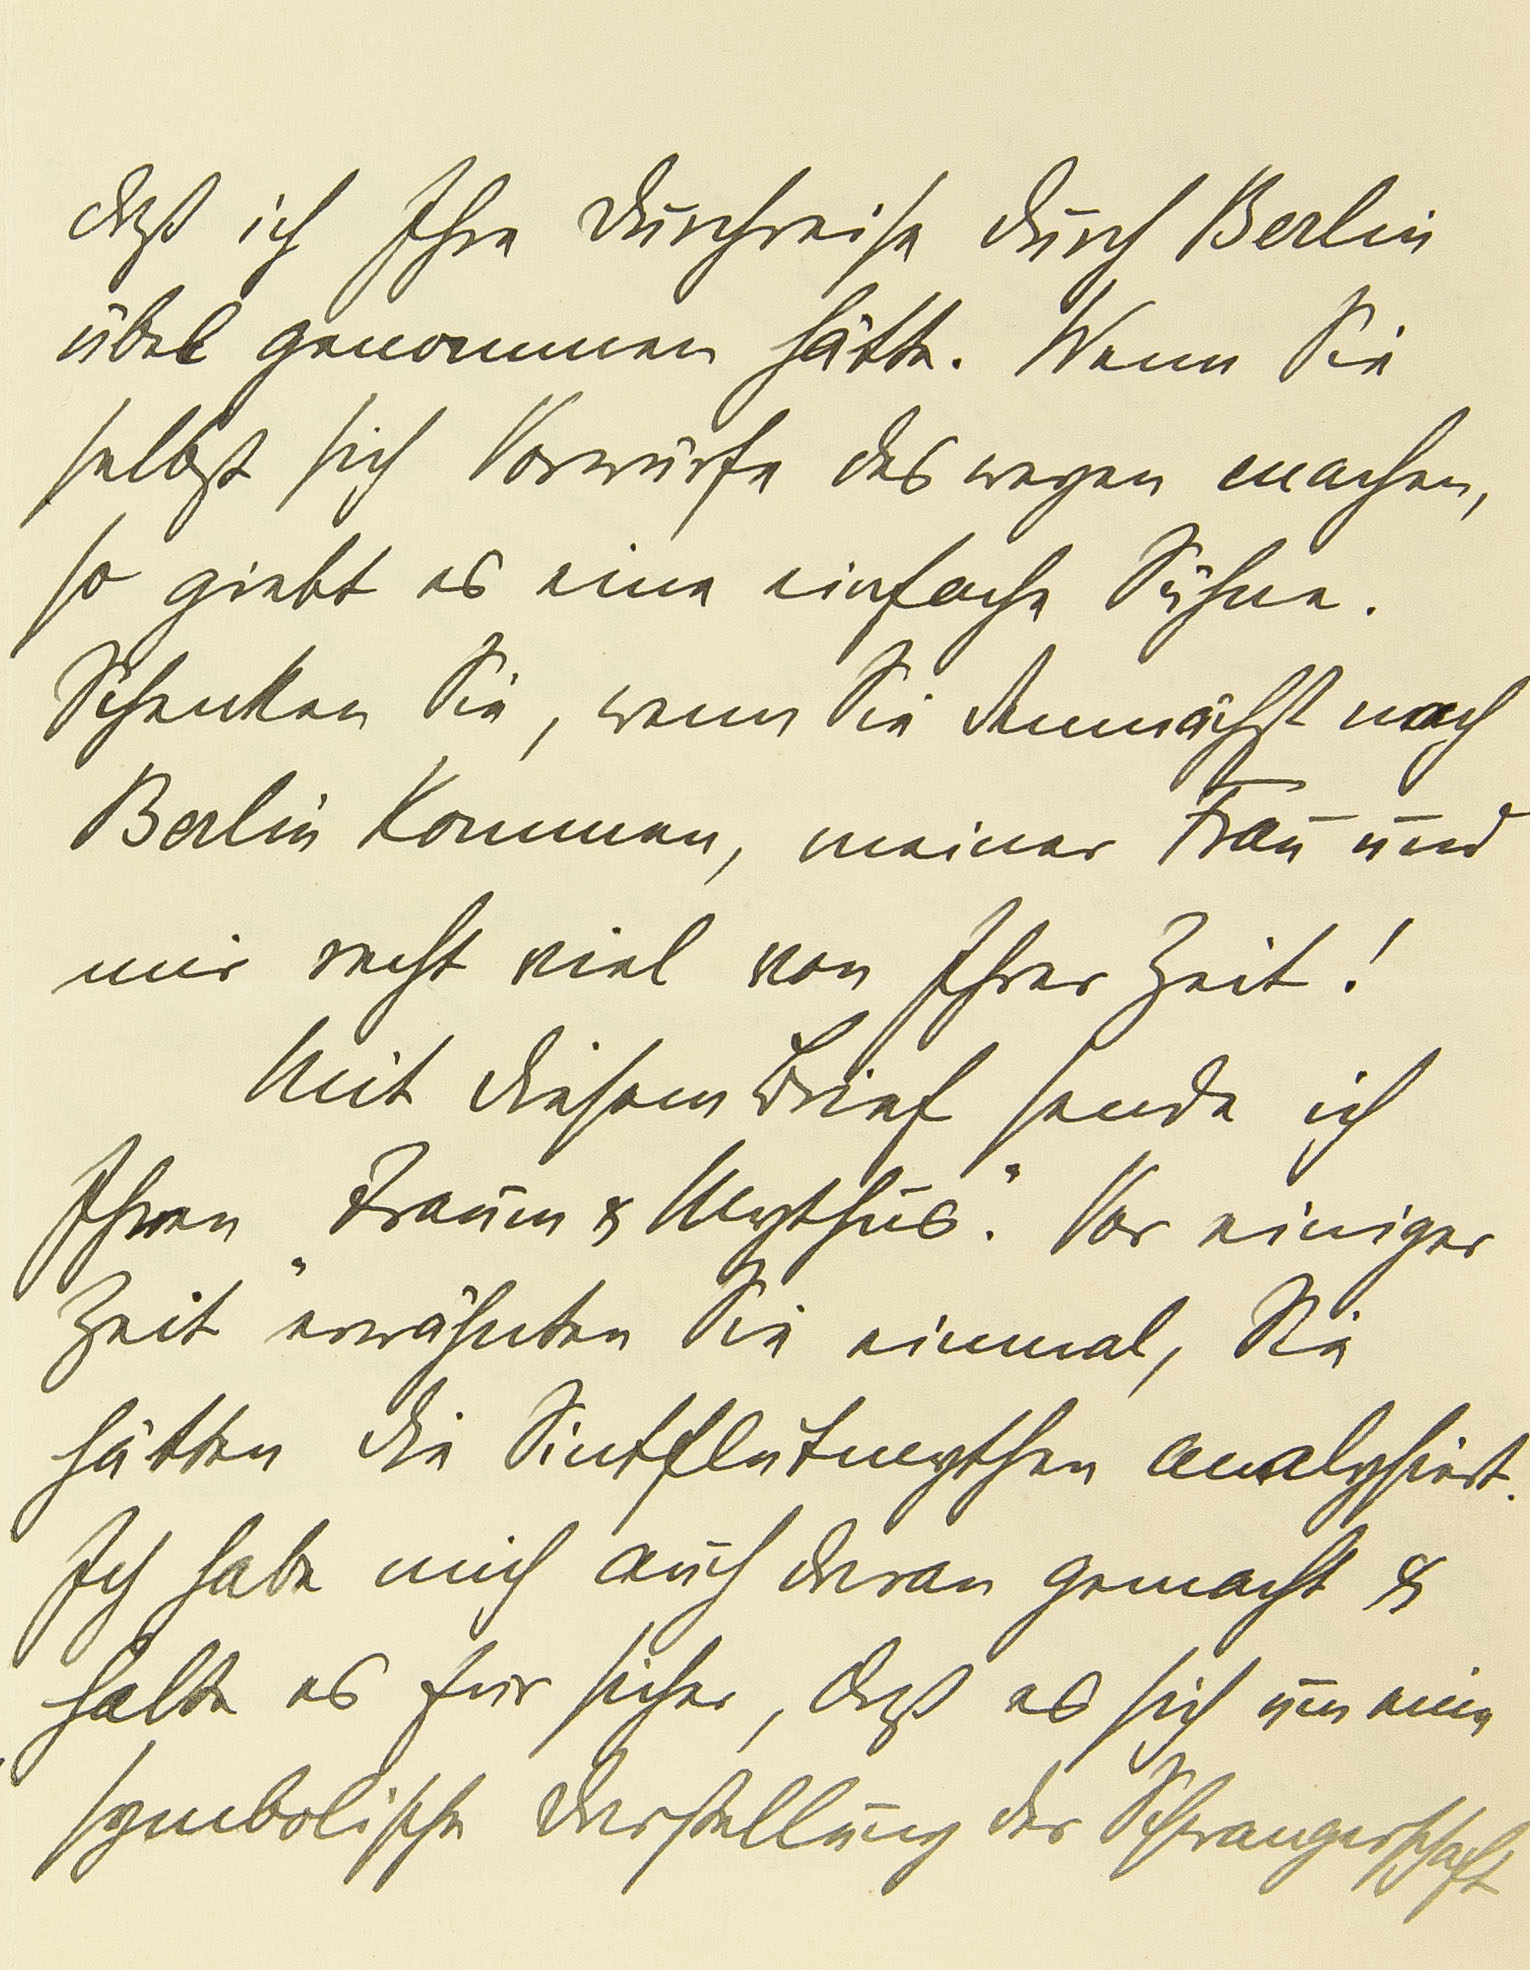 daß ich Ihre Durchreise durch Berlin
übel genommen hätte. Wenn Sie
selbst sich Vorwürfe deswegen machen,
so giebt es eine einfache Sühne.
Schenken Sie, wenn Sie demnächst nach
Berlin kommen, meiner Frau und
mir recht viel von Ihrer Zeit!
Mit diesem Brief sende ich
Ihnen „Traum & Mythus“. Vor einiger
Zeit erwähnten Sie einmal, Sie
hätten die Sintflutmythen analysiert.
Ich habe mich auch daran gemacht &
halte es für sicher, daß es sich um eine
symbolische Darstellung der Schwangerschaft